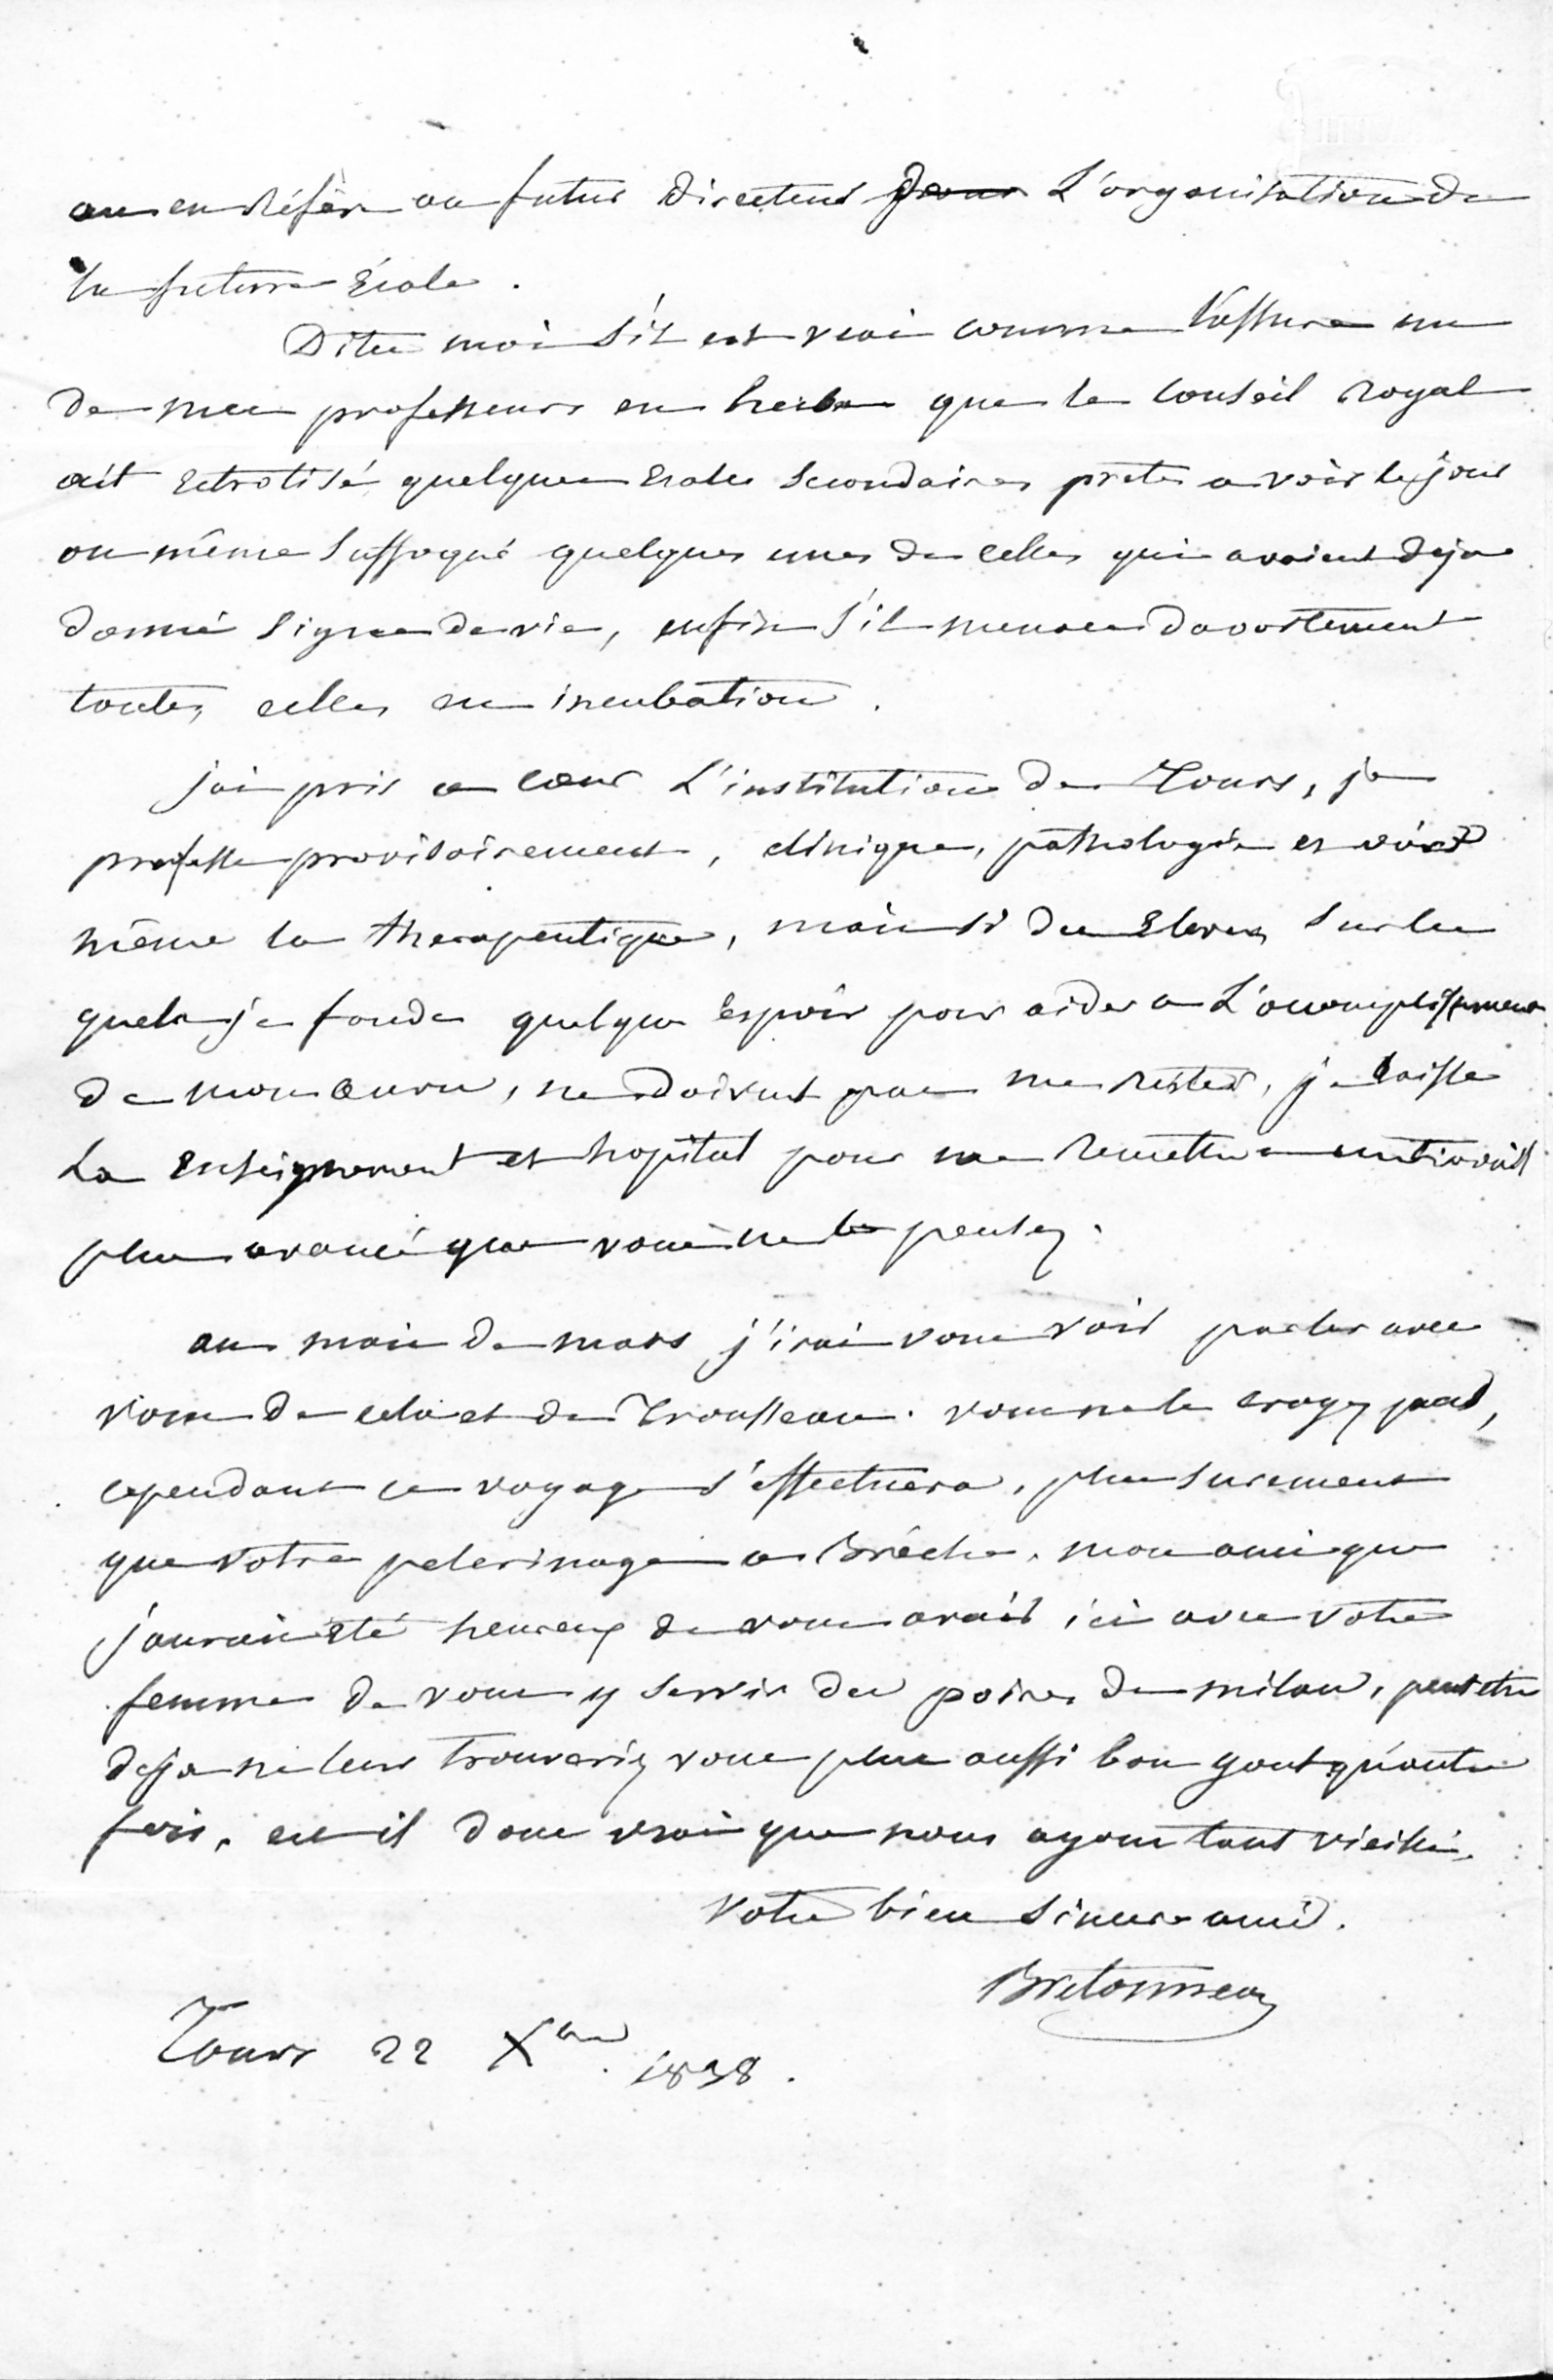 on en réfère au futur directeur pour L'organisation de
la future École.
Dites moi s'il est vrai comme l'assure un
de mes professeurs en herbe que le conseil royal
ait quelques Ecoles secondaires pretes a voir le jour
ou même suffoqué quelques unes de celles qui avaient deja
donné signe de vie, enfin s'il menace d'avortement
toutes celles en incubation.
j'ai pris a cœur L'institution de Tours, je
professe provisoirement, clinique, pathologie et
même la therapeutique, mais si des Eleves sur les
quels je fonde quelque espoir pour aider a L'accomplissement
de mon œuvre, ne doivent pas me rester, je laisse
La Enseignement et hopital pour me remettre a un travail
plus avancé que vous ne le pensez.
au mois de mars j'irai vous voir parler avec
vous de cela et de Trousseau. vous ne le croyez pas,
cependant ce voyage s'effectuera, plus surement
que votre pelerinage a Brêche. mon ami que
j'aurais été heureux de vous avoir ici avec votre
femme de vous y servir des poires de milan, peut etre
deja ne leur trouveriez vous plus aussi bon gout qu'autre
fois. est il donc vrai que nous ayons tant vieilli.
Votre bien sincere ami.
Bretonneau
Tours 22 Xbre 1838.